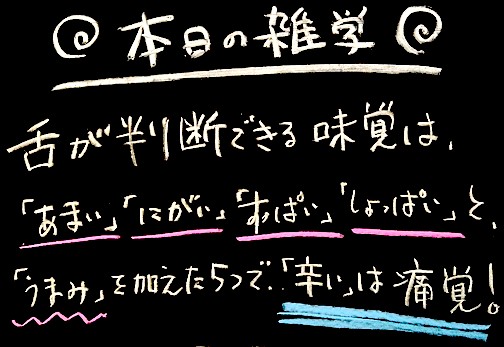 本日の雑学
舌が判り断できる味覚は、
「あまい」「にがい」「すっぱい」「しょっぱい」と、
「うまみ」を加えた5つで‥「辛い」は痛覚!